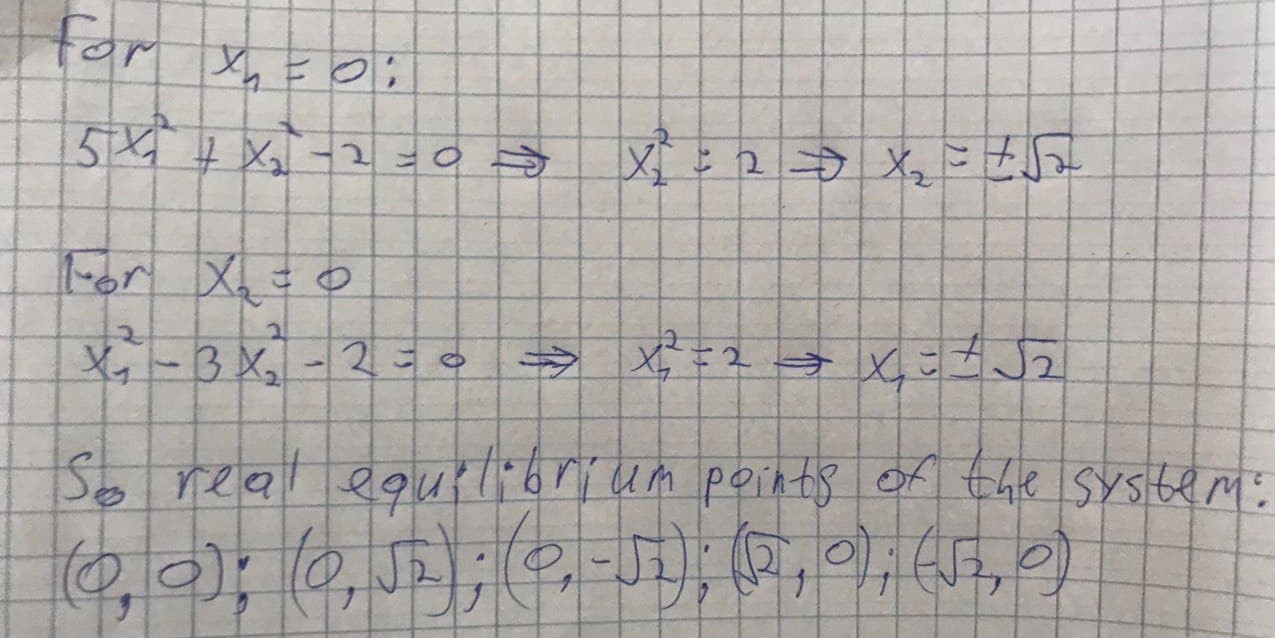 For x₁ = 0:
5x₁² + x₂² - 2 = 0 ⇒ x₂² = 2 ⇒ x₂ = ±√2
For x₂ = 0
x₁² - 3x₂² - 2 = 0 ⇒ x₁² = 2 ⇒ x₁ = ±√2
So real equilibrium points of the system:
(0, 0); (0, √2); (0, -√2); (√2, 0); (-√2, 0)